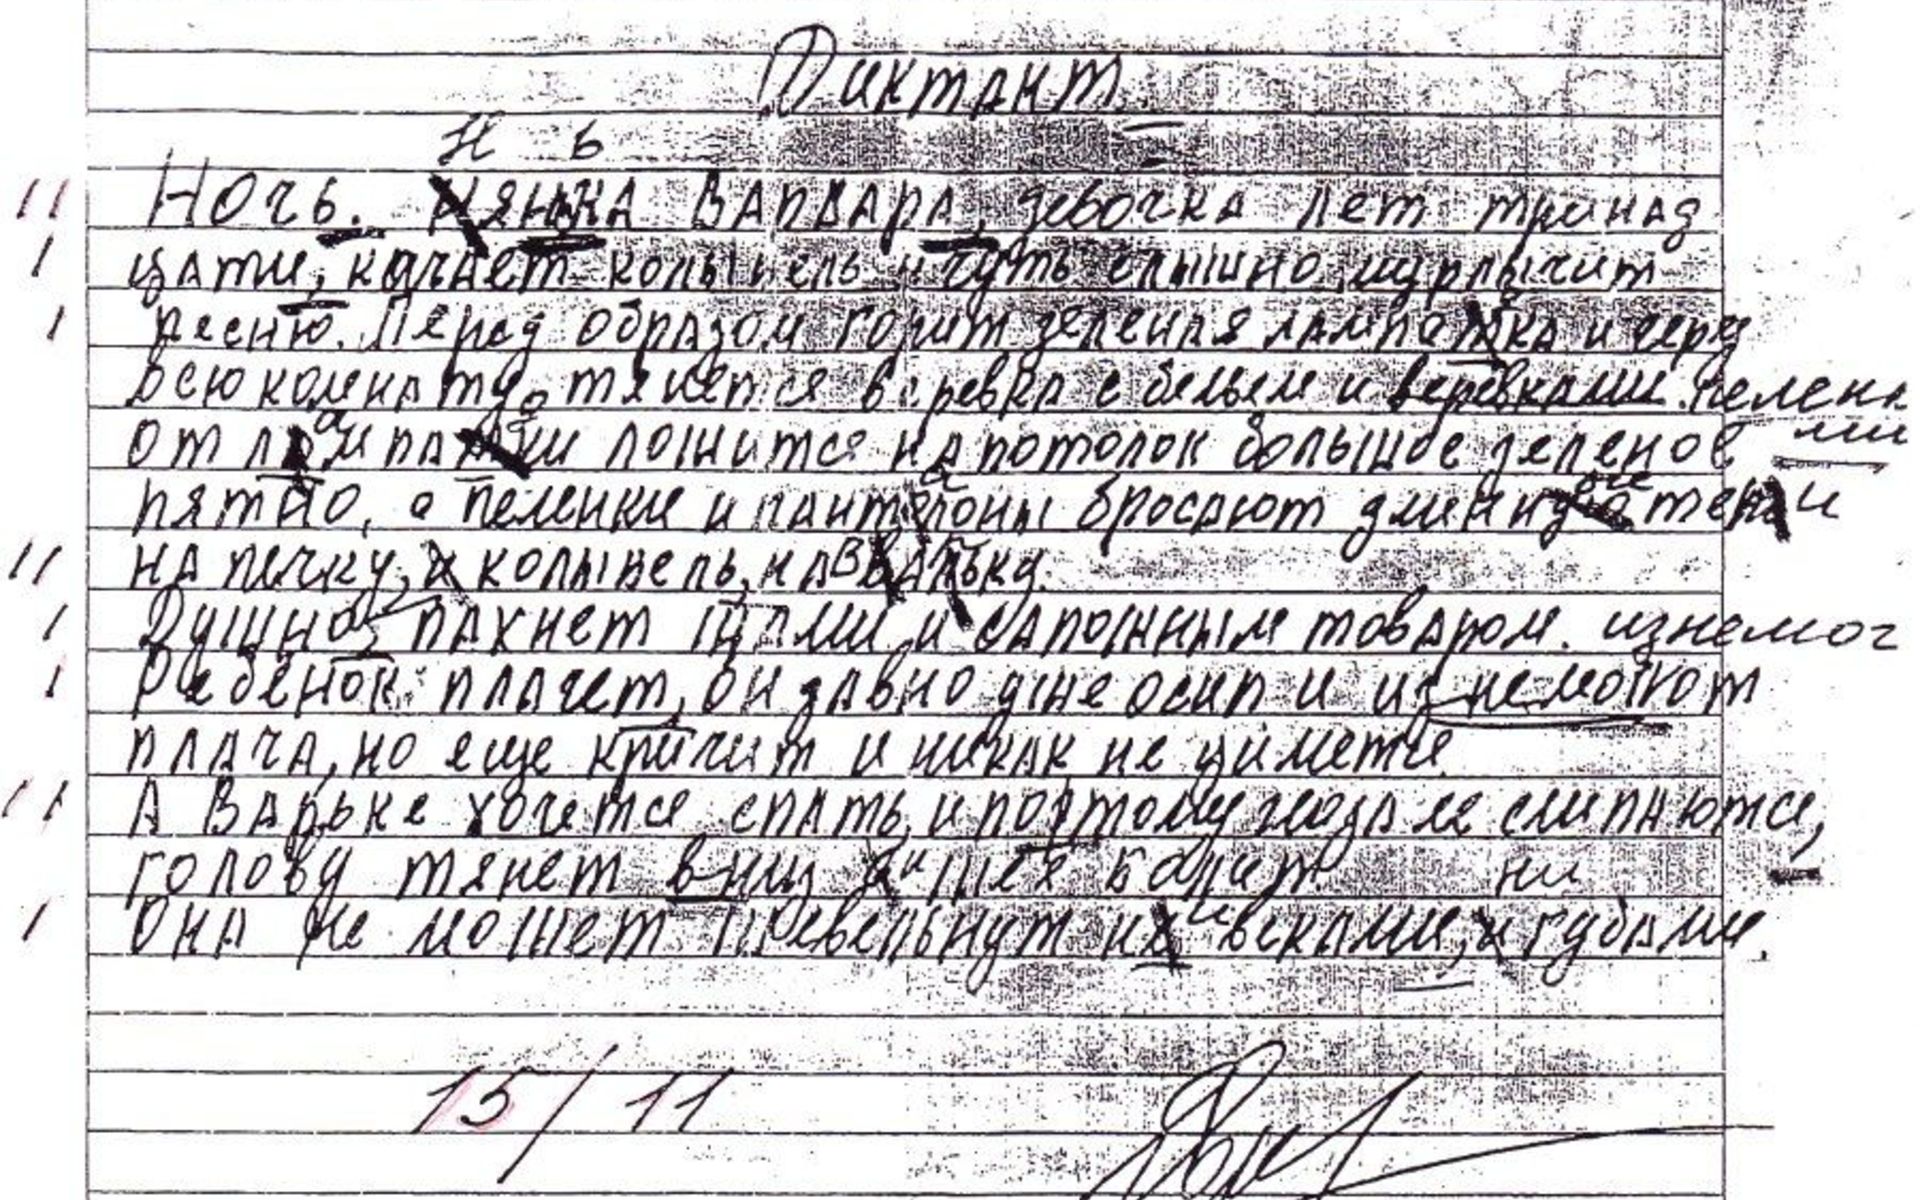 Диктант
Н ь
Ночь. Нянька Варвара, девочка лет тринад
цати, качает колыбель и чуть слышно мурлычит
песню. Перед образом горит зеленая лампадка и через
всю комнату тянется веревка с бельем и веревками. пелена
ми
от лампадки ложится на потолок большое зеленое
пятно, а пеленки и панталоны бросают длинные тени
на печку, колыбель, на Варьку.
Душно, пахнет щами и сапожным товаром. изнемог
Ребёнок плачет, он давно уже осип и изнемог от
плача, но еще кричит и никак не уймется
А Варьке хочется спать, и поэтому глаза ее слипаются,
голову тянет вниз и шея болит
ни
Она не может шевельнут ни веками, губами.
15/11